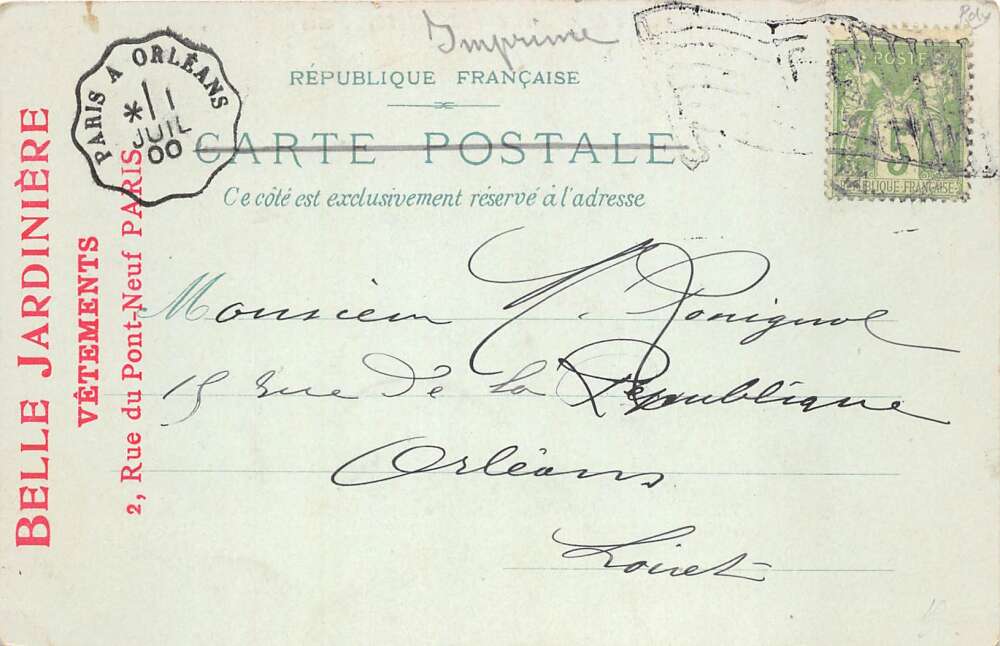 Imprimé
Poly
PARIS A ORLÉANS
* 1
JUIL
00
POSTE
5
RÉPUBLIQUE FRANÇAISE
RÉPUBLIQUE FRANÇAISE
CARTE POSTALE
Ce côté est exclusivement réservé à l'adresse
BELLE JARDINIÈRE
VÊTEMENTS
2, Rue du Pont-Neuf PARIS
Monsieur
15 rue de la République
Orléans
Loiret